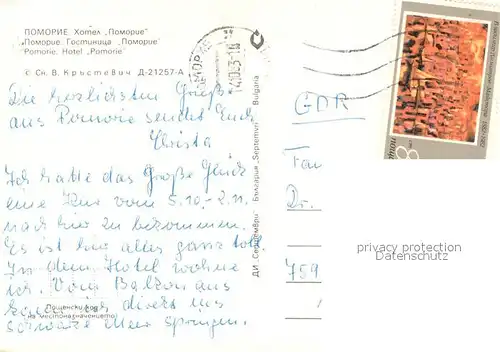 ПОМОРИЕ Хотел „Поморие"
Поморие Гостиница „Поморие"
Pomorie. Hotel „Pomorie"
с Сн. В. Кръстевич Д-21257-А
Die herzlichsten Grüße
aus Pomorie sendet Euch
Christa
Ich hatte das große Glück
eine Kur vom 5.10.-2.11.
nach hier zu bekommen.
Es ist hier alles ganz toll
In dem Hotel wohne
ich. Vom Balkon aus
kann ich direkt ins
schwarze Meer springen.
Пощенски код
на местоназначението
ДИ „Септември" България „Septemvri" Bulgaria
GDR
Frau
Dr.
759
privacy protection
Datenschutz